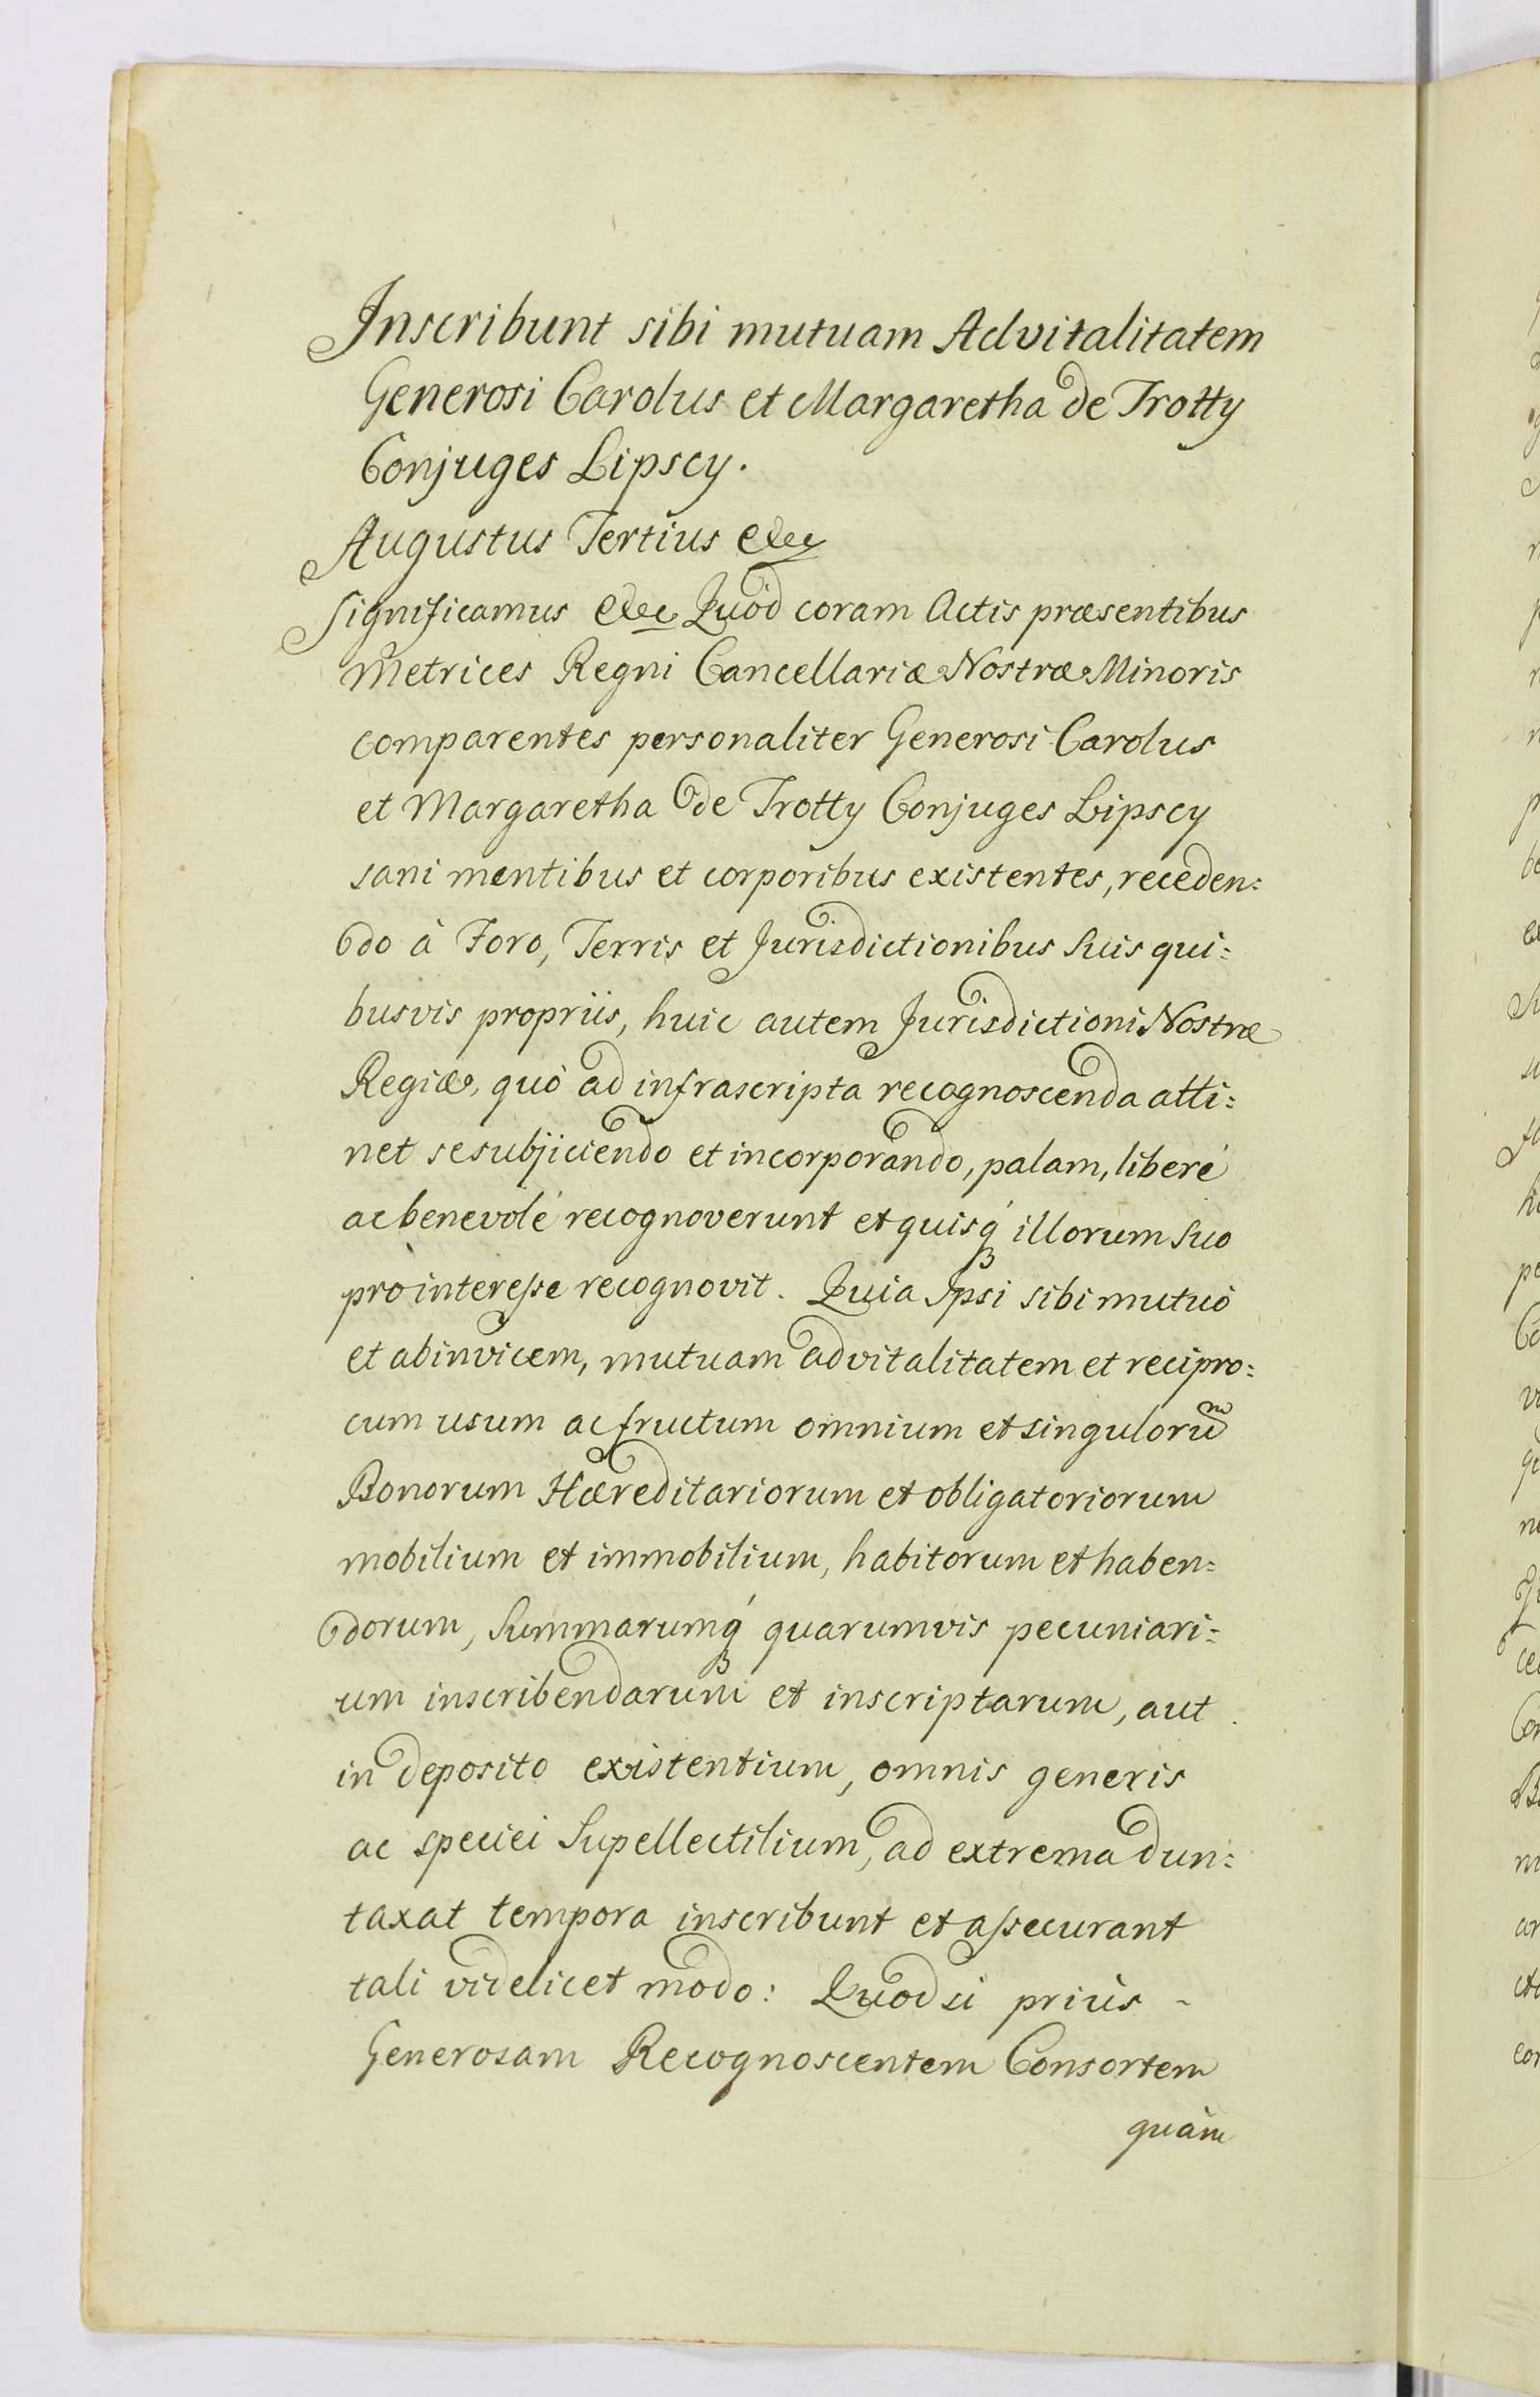 Inscribunt sibi mutuam Advitalitatem
Generosi Carolus et Margaretha de Trotty
Conjuges Lipscy.
Augustus Tertius &c
Significamus &c Quòd coram Actis præsentibus
Metrices Regni Cancellariæ Nostræ Minoris
comparentes personaliter Generosi Carolus
et Margaretha de Trotty Conjuges Lipscy
sani mentibus et corporibus existentes, receden:
do à Foro, Terris et Jurisdictionibus Suis qui:
busvis propriis, huic autem Jurisdictioni Nostræ
Regiæ, quò ad infrascripta recognoscenda atti:
net se subjiciendo et incorporando, palam, liberé
ac benevolé recognoverunt et quisq́ illorum Suo
pro interesse recognovit. Quia Ipsi sibi mutuò
et abinvicem, mutuam advitalitatem et recipro:
cum usum ac fructum omnium et singulorũm
Bonorum Hæreditariorum et obligatoriorum
mobilium et immobilium, habitorum et haben:
dorum, Summarumq́ quarumvis pecuniari:
um inscribendarum et inscriptarum, aut
in deposito existentium, omnis generis
ac speciei Supellectilium, ad extrema dun:
taxat tempora inscribunt et assecurant
tali videlicet modo: Quod si priùs -
Generosam Recognoscentem Consortem
quàm